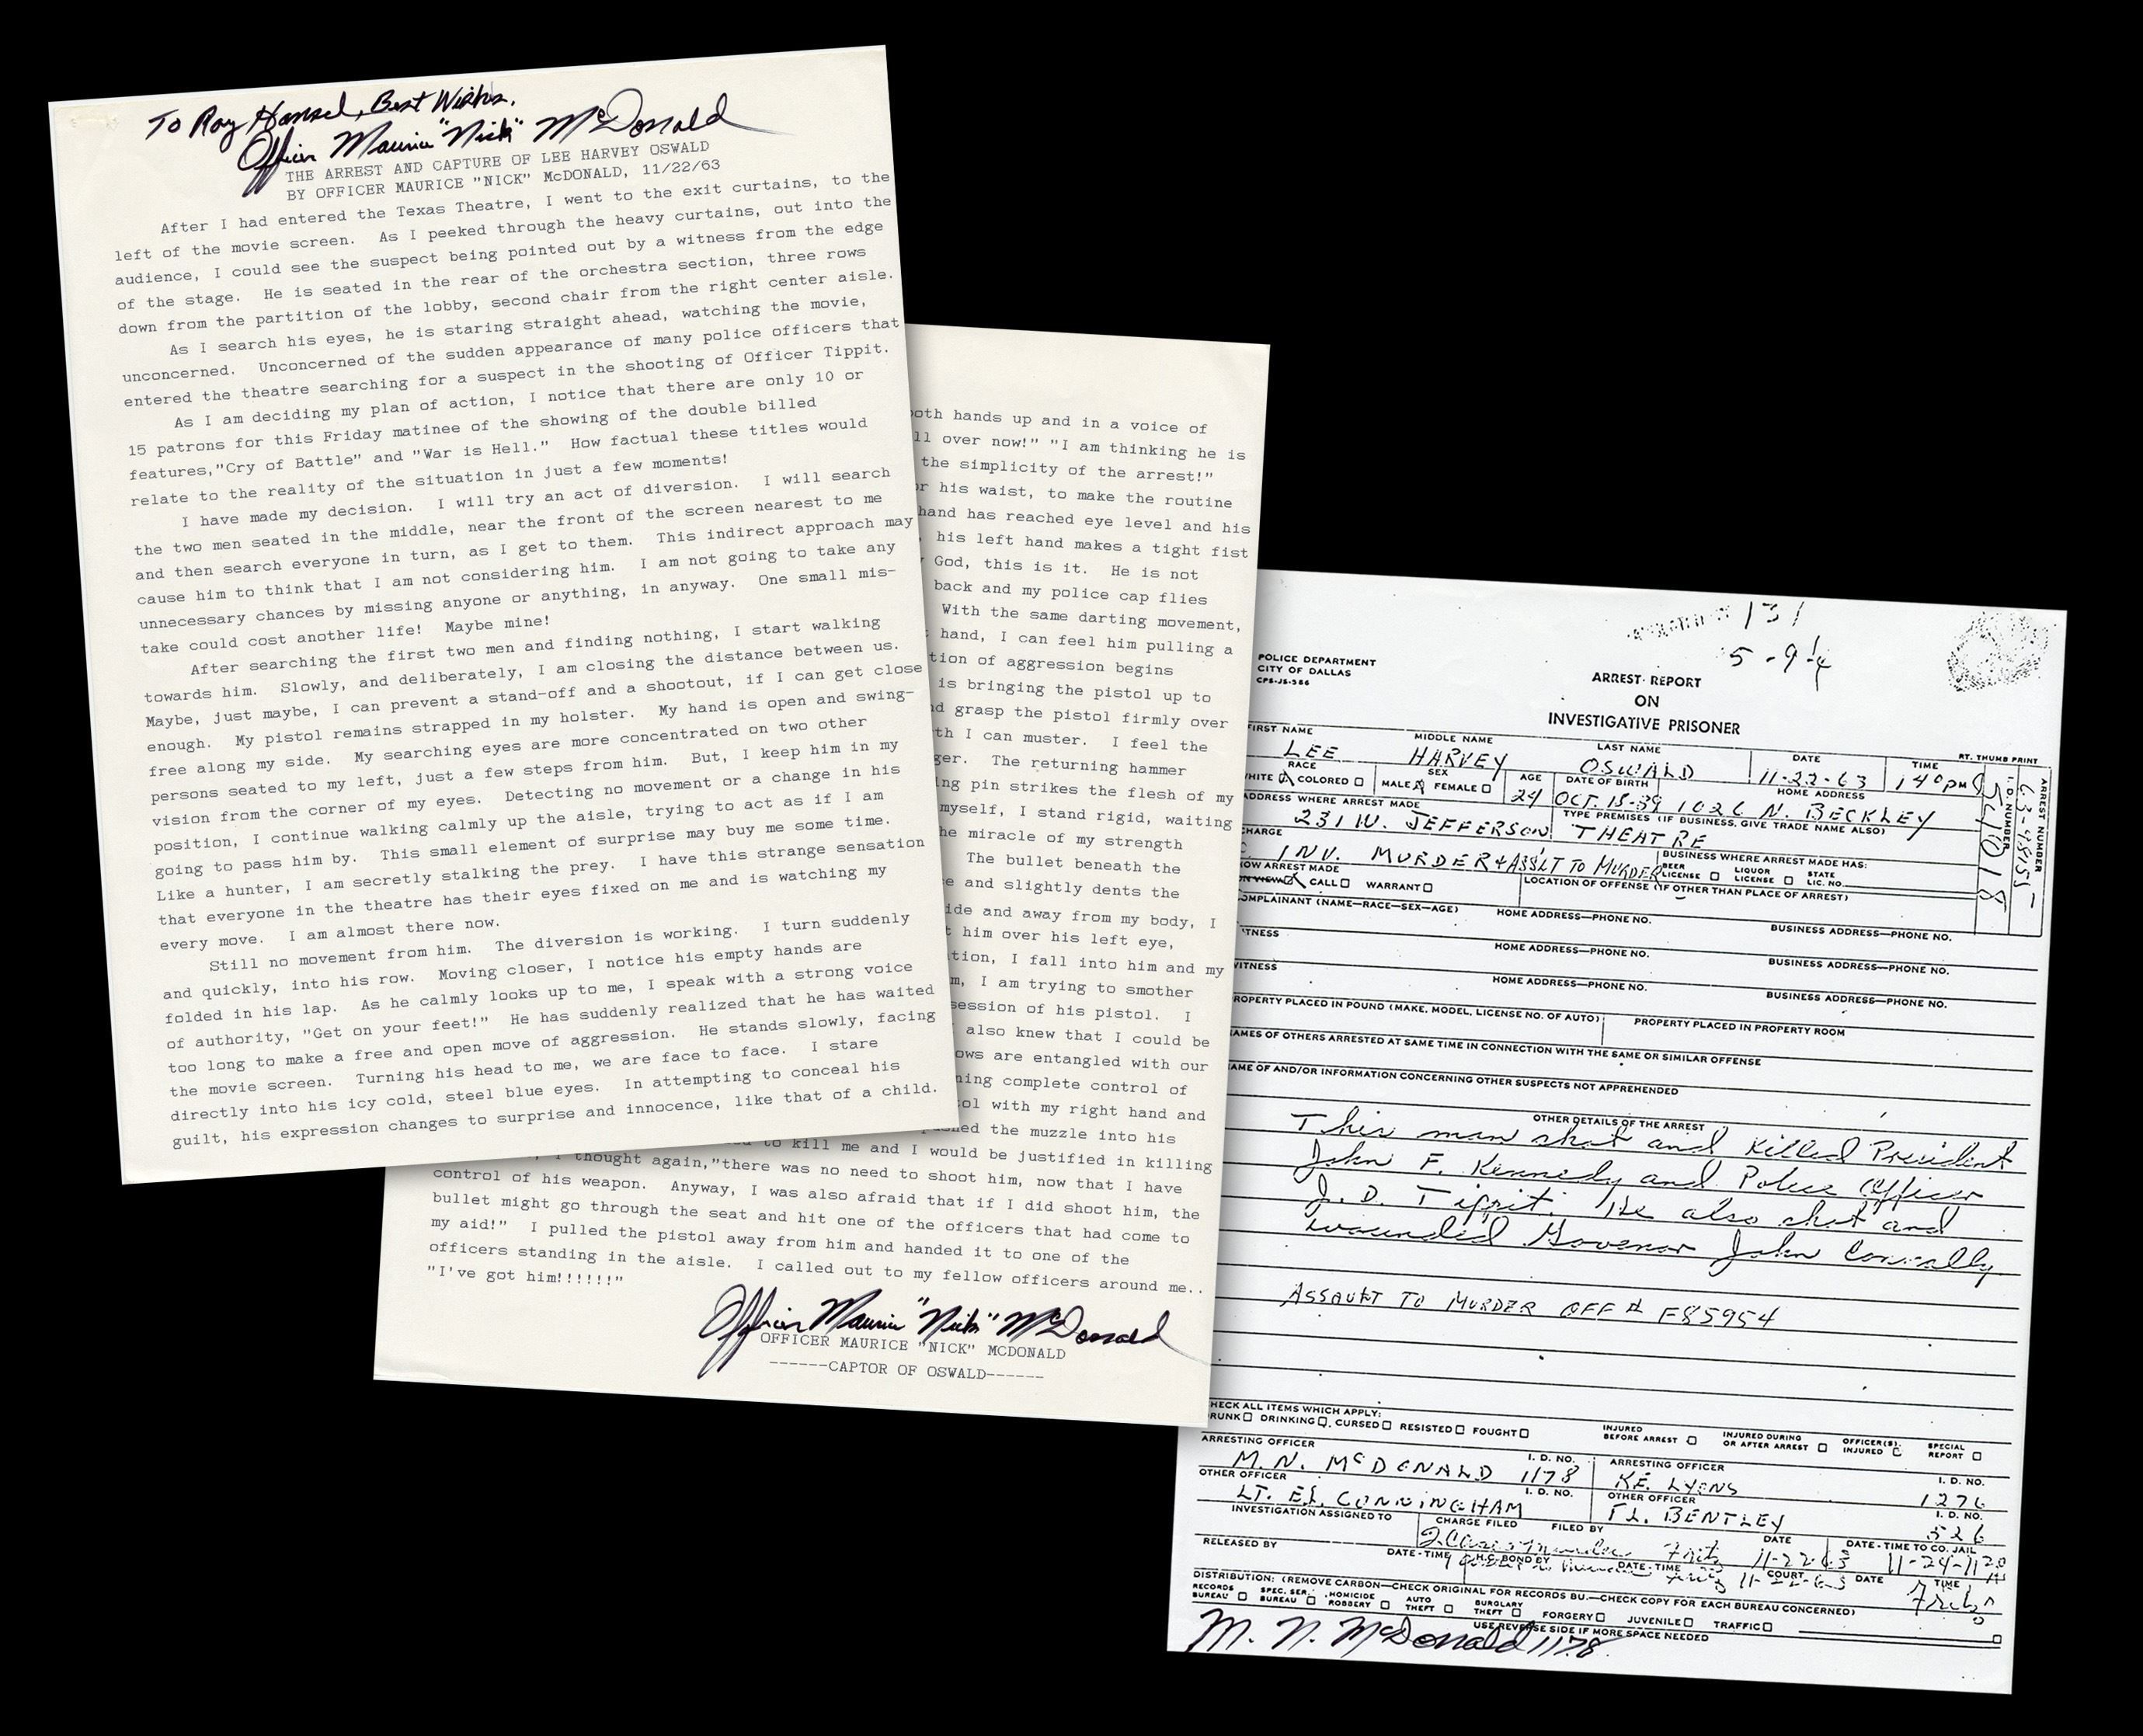 To Ray Hansel, Best Wishes,
Officer Maurice "Nick" McDonald
THE ARREST AND CAPTURE OF LEE HARVEY OSWALD
BY OFFICER MAURICE "NICK" McDONALD, 11/22/63
After I had entered the Texas Theatre, I went to the exit curtains, to the
left of the movie screen. As I peeked through the heavy curtains, out into the
audience, I could see the suspect being pointed out by a witness from the edge
of the stage. He is seated in the rear of the orchestra section, three rows
down from the partition of the lobby, second chair from the right center aisle.
As I search his eyes, he is staring straight ahead, watching the movie,
unconcerned. Unconcerned of the sudden appearance of many police officers that
entered the theatre searching for a suspect in the shooting of Officer Tippit.
As I am deciding my plan of action, I notice that there are only 10 or
15 patrons for this Friday matinee of the showing of the double billed
features,"Cry of Battle" and "War is Hell." How factual these titles would
relate to the reality of the situation in just a few moments!
I have made my decision. I will try an act of diversion. I will search
the two men seated in the middle, near the front of the screen nearest to me
and then search everyone in turn, as I get to them. This indirect approach may
cause him to think that I am not considering him. I am not going to take any
unnecessary chances by missing anyone or anything, in anyway. One small mis-
take could cost another life! Maybe mine!
After searching the first two men and finding nothing, I start walking
towards him. Slowly, and deliberately, I am closing the distance between us.
Maybe, just maybe, I can prevent a stand-off and a shootout, if I can get close
enough. My pistol remains strapped in my holster. My hand is open and swing-
free along my side. My searching eyes are more concentrated on two other
persons seated to my left, just a few steps from him. But, I keep him in my
vision from the corner of my eyes. Detecting no movement or a change in his
position, I continue walking calmly up the aisle, trying to act as if I am
going to pass him by. This small element of surprise may buy me some time.
Like a hunter, I am secretly stalking the prey. I have this strange sensation
that everyone in the theatre has their eyes fixed on me and is watching my
every move. I am almost there now.
Still no movement from him. The diversion is working. I turn suddenly
and quickly, into his row. Moving closer, I notice his empty hands are
folded in his lap. As he calmly looks up to me, I speak with a strong voice
of authority, "Get on your feet!" He has suddenly realized that he has waited
too long to make a free and open move of aggression. He stands slowly, facing
the movie screen. Turning his head to me, we are face to face. I stare
directly into his icy cold, steel blue eyes. In attempting to conceal his
guilt, his expression changes to surprise and innocence, like that of a child.
both hands up and in a voice of
ll over now!" "I am thinking he is
the simplicity of the arrest!"
or his waist, to make the routine
hand has reached eye level and his
, his left hand makes a tight fist
God, this is it. He is not
back and my police cap flies
With the same darting movement,
hand, I can feel him pulling a
tion of aggression begins
is bringing the pistol up to
nd grasp the pistol firmly over
th I can muster. I feel the
ger. The returning hammer
ing pin strikes the flesh of my
myself, I stand rigid, waiting
he miracle of my strength
The bullet beneath the
e and slightly dents the
ide and away from my body, I
him over his left eye,
tion, I fall into him and my
m, I am trying to smother
session of his pistol. I
also knew that I could be
ows are entangled with our
ning complete control of
ol with my right hand and
pushed the muzzle into his
to kill me and I would be justified in killing
I thought again,"there was no need to shoot him, now that I have
control of his weapon. Anyway, I was also afraid that if I did shoot him, the
bullet might go through the seat and hit one of the officers that had come to
my aid!" I pulled the pistol away from him and handed it to one of the
officers standing in the aisle. I called out to my fellow officers around me..
"I've got him!!!!!!"
Officer Maurice "Nick" McDonald
OFFICER MAURICE "NICK" MCDONALD
------CAPTOR OF OSWALD------
131
5-9¼
POLICE DEPARTMENT
CITY OF DALLAS
CPS-JS-386
ARREST REPORT
ON
INVESTIGATIVE PRISONER
FIRST NAME MIDDLE NAME LAST NAME DATE TIME RT. THUMB PRINT
LEE HARVEY OSWALD 11-22-63 1 40 PM
RACE SEX AGE DATE OF BIRTH HOME ADDRESS
WHITE COLORED MALE FEMALE 24 OCT. 18-39 1026 N. BECKLEY
I. D. NUMBER 54018
ARREST NUMBER 63-98155
ADDRESS WHERE ARREST MADE TYPE PREMISES (IF BUSINESS, GIVE TRADE NAME ALSO)
231 W. JEFFERSON THEATRE
CHARGE BUSINESS WHERE ARREST MADE HAS:
INV. MURDER & ASS'LT TO MURDER BEER LICENSE LIQUOR LICENSE STATE LIC. NO.
HOW ARREST MADE LOCATION OF OFFENSE (IF OTHER THAN PLACE OF ARREST)
ON VIEW CALL WARRANT
COMPLAINANT (NAME—RACE—SEX—AGE) HOME ADDRESS—PHONE NO. BUSINESS ADDRESS—PHONE NO.
WITNESS HOME ADDRESS—PHONE NO. BUSINESS ADDRESS—PHONE NO.
WITNESS HOME ADDRESS—PHONE NO. BUSINESS ADDRESS—PHONE NO.
PROPERTY PLACED IN POUND (MAKE, MODEL, LICENSE NO. OF AUTO) PROPERTY PLACED IN PROPERTY ROOM
NAMES OF OTHERS ARRESTED AT SAME TIME IN CONNECTION WITH THE SAME OR SIMILAR OFFENSE
NAME OF AND/OR INFORMATION CONCERNING OTHER SUSPECTS NOT APPREHENDED
OTHER DETAILS OF THE ARREST
This man shot and killed President
John F. Kennedy and Police Officer
J. D. Tippit. He also shot and
wounded Govenor John Connally
ASSAULT TO MURDER OFF # F85954
CHECK ALL ITEMS WHICH APPLY:
DRUNK DRINKING CURSED RESISTED FOUGHT INJURED BEFORE ARREST INJURED DURING OR AFTER ARREST OFFICER(S) INJURED SPECIAL REPORT
ARRESTING OFFICER I. D. NO. ARRESTING OFFICER I. D. NO.
M. N. McDONALD 1178 K.E. LYONS 1276
OTHER OFFICER I. D. NO. OTHER OFFICER I. D. NO.
LT. E.L. CUNNINGHAM T.L. BENTLEY 526
INVESTIGATION ASSIGNED TO CHARGE FILED FILED BY DATE DATE-TIME TO CO. JAIL
Fritz 11-22-63 11-24-11 20
RELEASED BY DATE-TIME H.C. BOND BY DATE-TIME COURT DATE TIME
DISTRIBUTION: (REMOVE CARBON—CHECK ORIGINAL FOR RECORDS BU.—CHECK COPY FOR EACH BUREAU CONCERNED)
RECORDS BUREAU SPEC. SER. BUREAU HOMICIDE ROBBERY AUTO THEFT BURGLARY THEFT FORGERY JUVENILE TRAFFIC
USE REVERSE SIDE IF MORE SPACE NEEDED
M. N. McDonald 1178